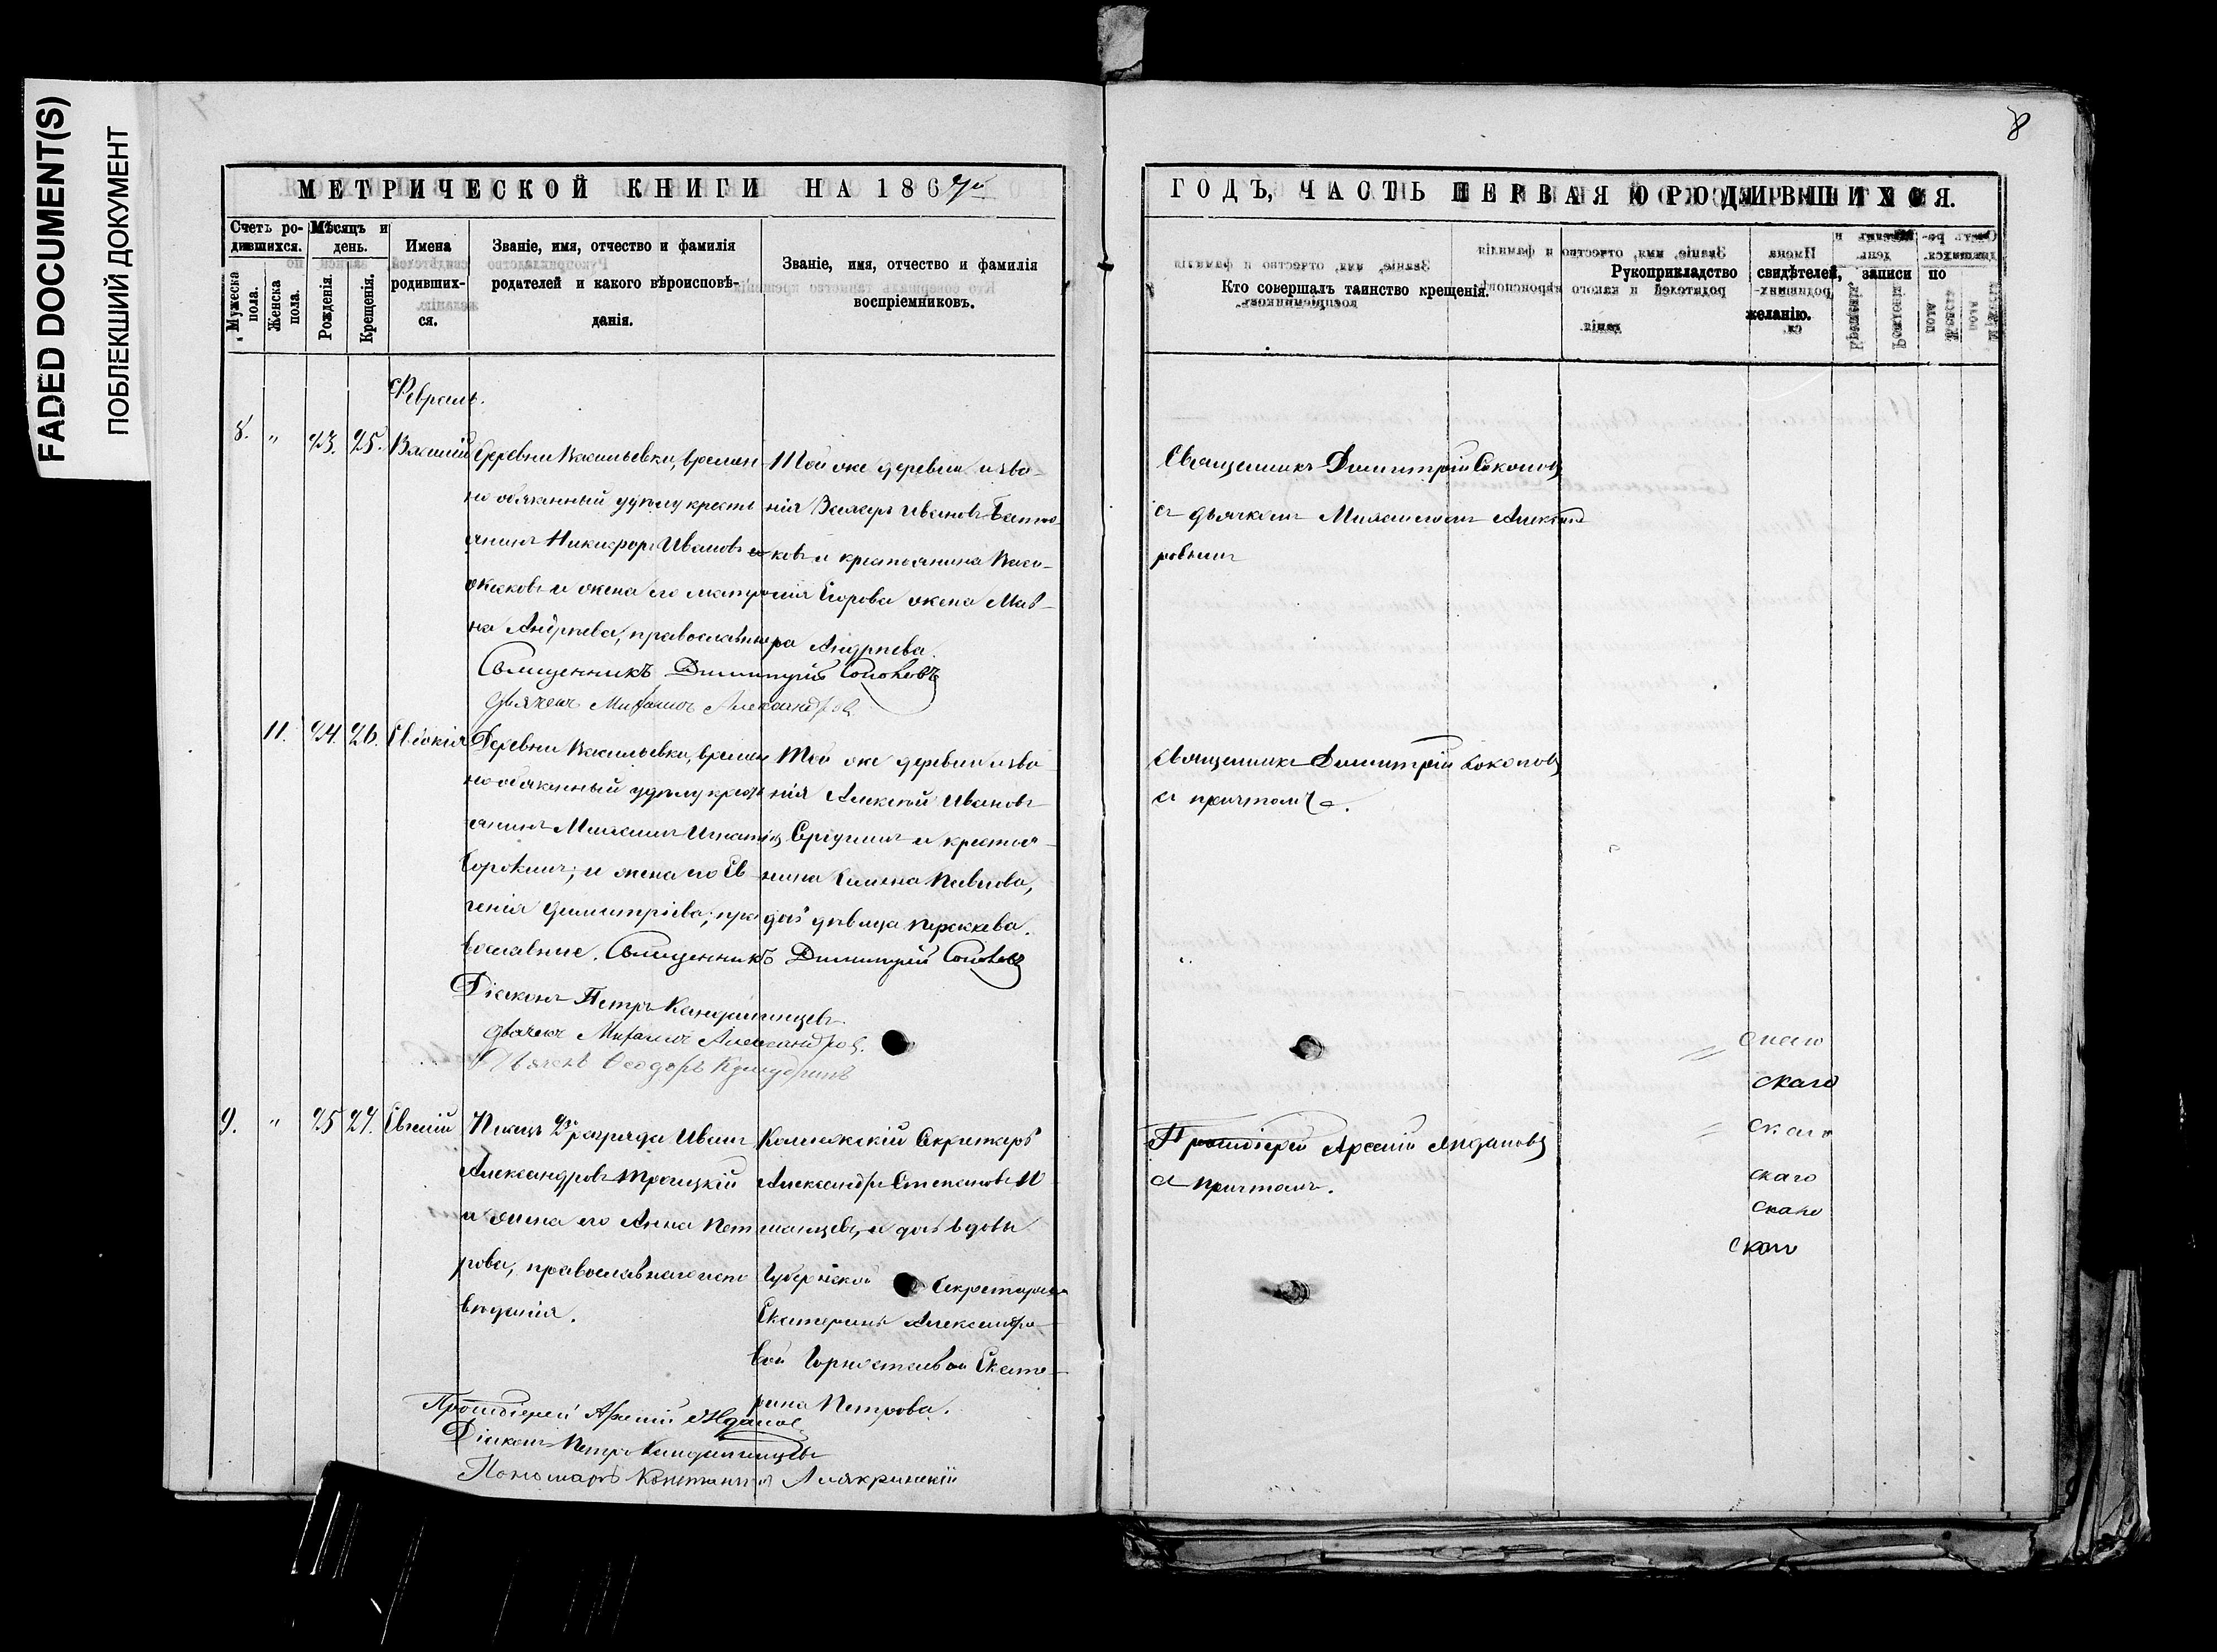 FADED DOCUMENT(S)
ПОБЛЕКШИЙ ДОКУМЕНТ
8
МЕТРИЧЕСКОЙ КНИГИ НА 1867й
ГОДЪ, ЧАСТЬ ПЕРВАЯ О РОДИВШИХСЯ.
Счетъ ро-
дившихся.
Мужеска
пола.
Женска
пола.
Мѣсяцъ и
день.
Рожденія.
Крещенія.
Имена
родивших-
ся.
Званіе, имя, отчество и фамилія
родителей и какого вѣроисповѣ-
данія.
Званіе, имя, отчество и фамилія
воспріемниковъ.
Кто совершалъ таинство крещенія.
Рукоприкладство свидѣтелей, записи по
желанію.
Февраль.
8. " 23. 25. Василій
Деревни Васильевки, времен
но обязанный удѣлу кресть
янинъ Никифоръ Ивановъ
и жена его Матро
на Андреева, православн
Той же деревни и зва-
нія Ивановъ
и крестьянина Васи-
лія Егорова жена Мав-
ра Андреева.
Священникъ Димитрій Соколовъ
съ дьячкомъ Михаиломъ Александ
ровымъ
Священникъ Димитрій Соколовъ
Дьячекъ Михаилъ Александровъ
11. 24. 26. Евдокія
Деревни Васильевки, времен
но обязанный удѣлу кресть
янинъ Михаилъ Игнатіевъ
Сорокинъ; и жена его Ев
генія Димитріева; пра
вославные.
Той же деревни и зва
нія Алексѣй Ивановъ
и крестья
нина Павлова,
дочь дѣвица Параскева.
Священникъ Димитрій Соколовъ
съ причтомъ.
Священникъ Димитрій Соколовъ
Діаконъ Петръ
Дьячекъ Михаилъ Александровъ.
Дьячекъ Ѳеодоръ
9. " 25 27. Евгеній
Писецъ 2го разряда Иванъ
Александровъ Троицкій
и жена его Анна Пет
рова, православнаго испо
вѣданія.
Коллежскій Секретарь
Александръ Степановъ
и дочь вдовы
Губернской Секретарши
Екатерины Александро
вой Екате
рина Петрова.
Протоіерей Арсеній Ждановъ
съ причтомъ.
скаго
скаго
скаго
скаго
скаго
скаго
Протоіерей Арсеній Ждановъ
Діаконъ Петръ
Пономарь Константинъ Алякринскій